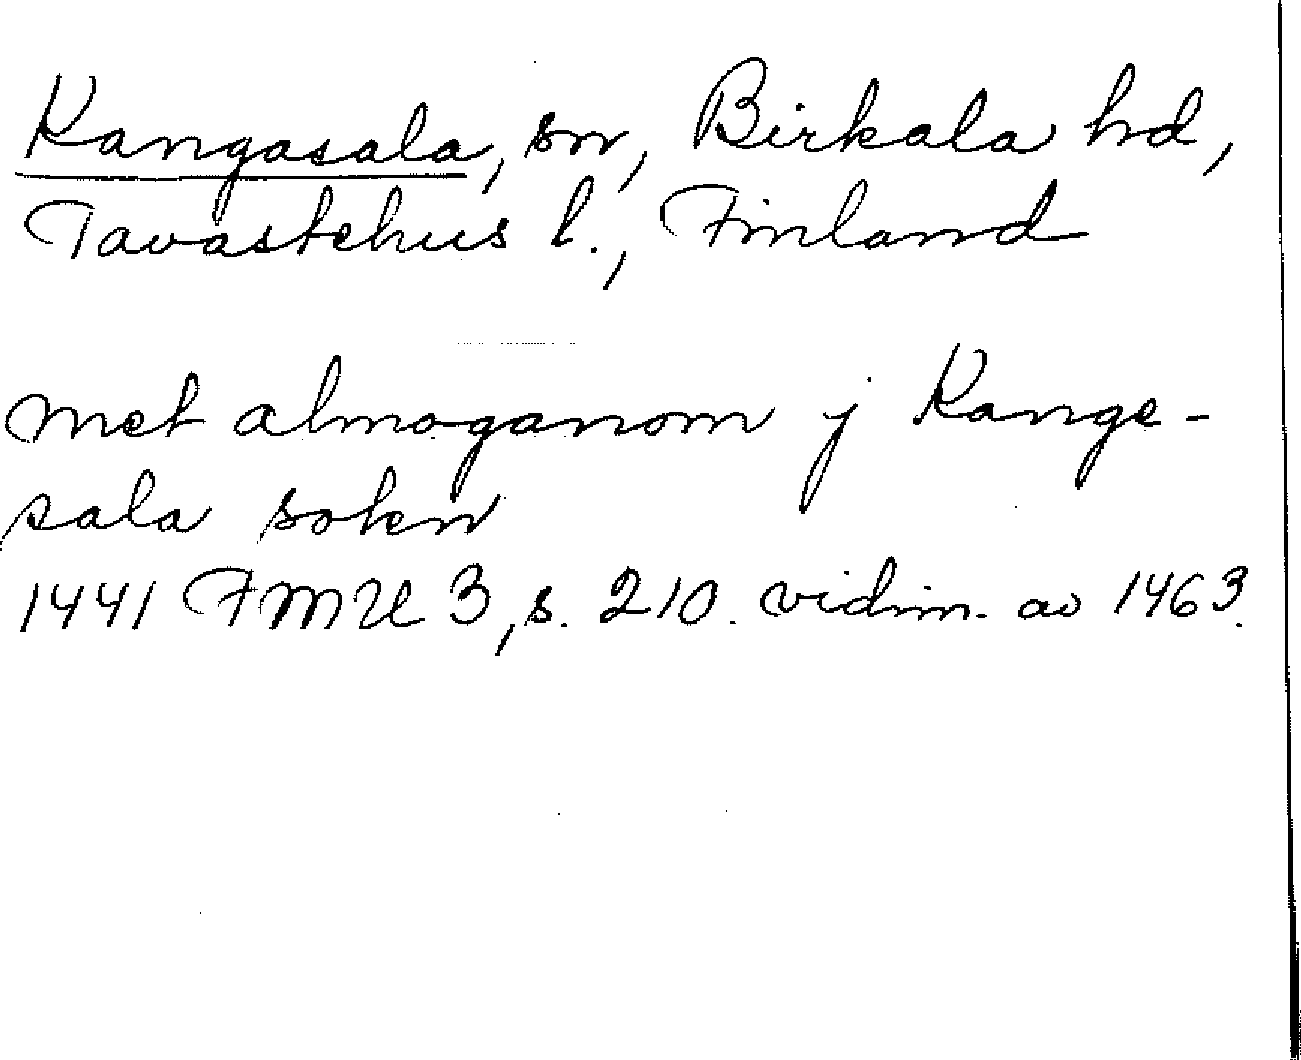 Kangasala, sn, Birkala hd,
Tavastehus l., Finland
met almoganom j Kange-
sala sokn
1441 FMU 3, s. 210. vidim. av 1463.